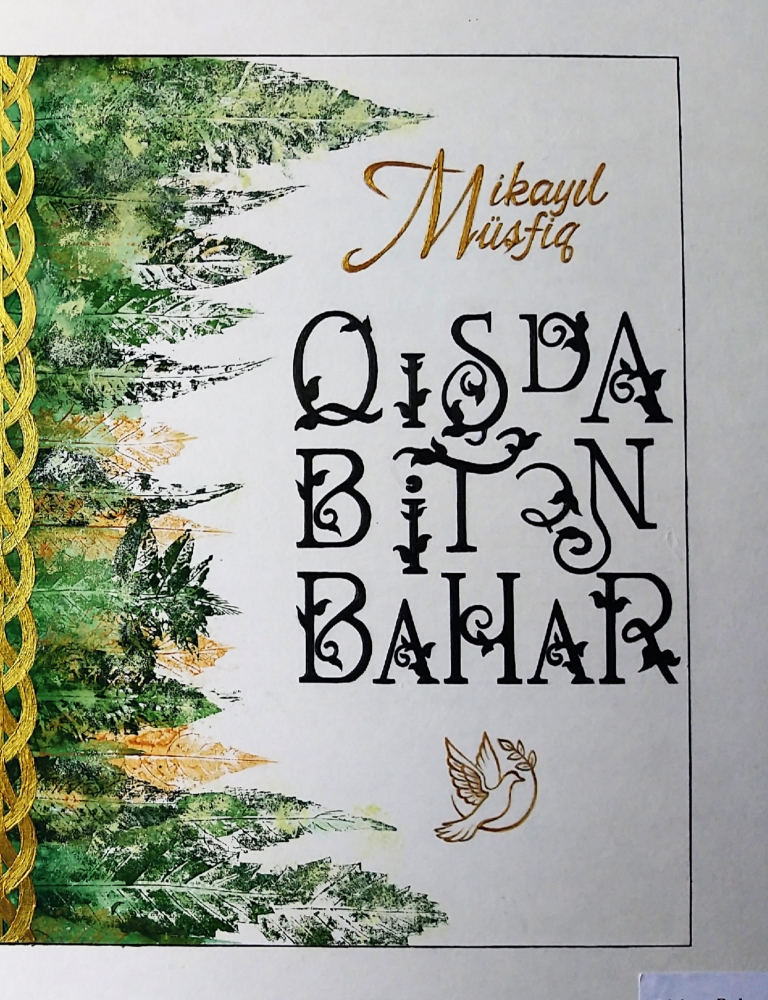 Mikayıl
Müşfiq
QIŞDA
BİTƏN
BAHAR